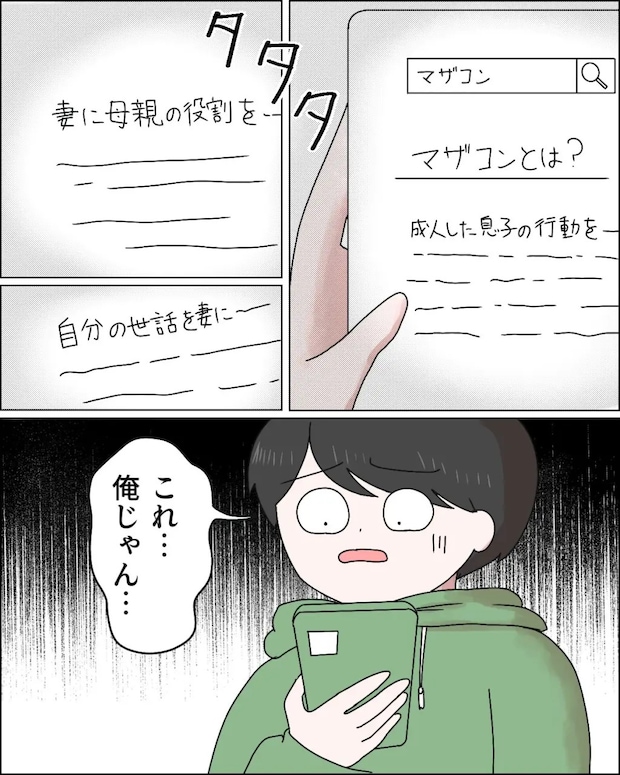 タタタ
マザコン
マザコンとは?
成人した息子の行動を―
妻に母親の役割を―
自分の世話を妻に〜
これ…
俺じゃん…